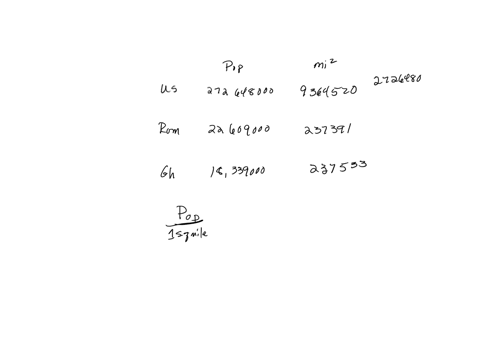 Pop mi²
US 272 648000 9364520 2726480
Rom 22 609000 237391
Gh 18,339000 237533
Pop
1 sq mile